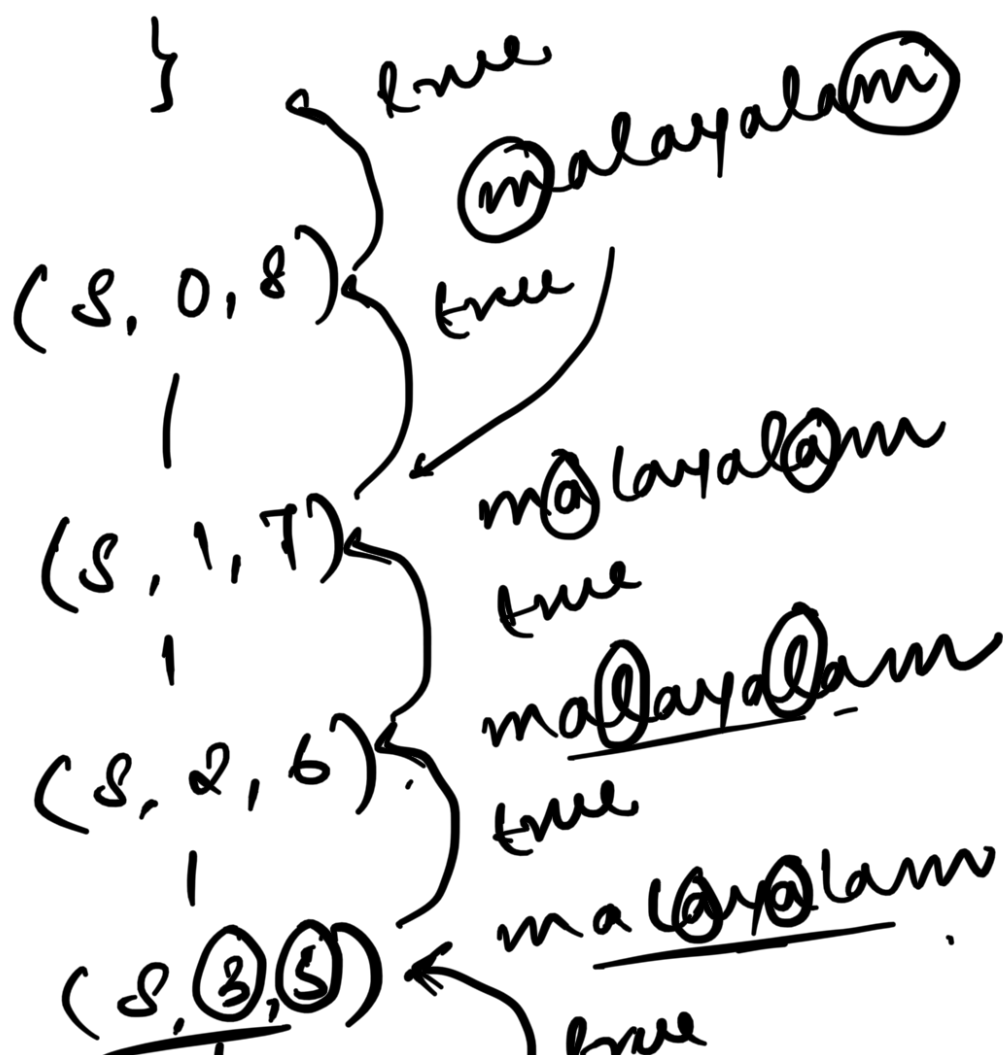 }
true
malayalam
(S, 0, 8)
true
malayalam
(S, 1, 7)
true
malayalam
(S, 2, 6)
true
malayalam
(S, 3, 5)
true